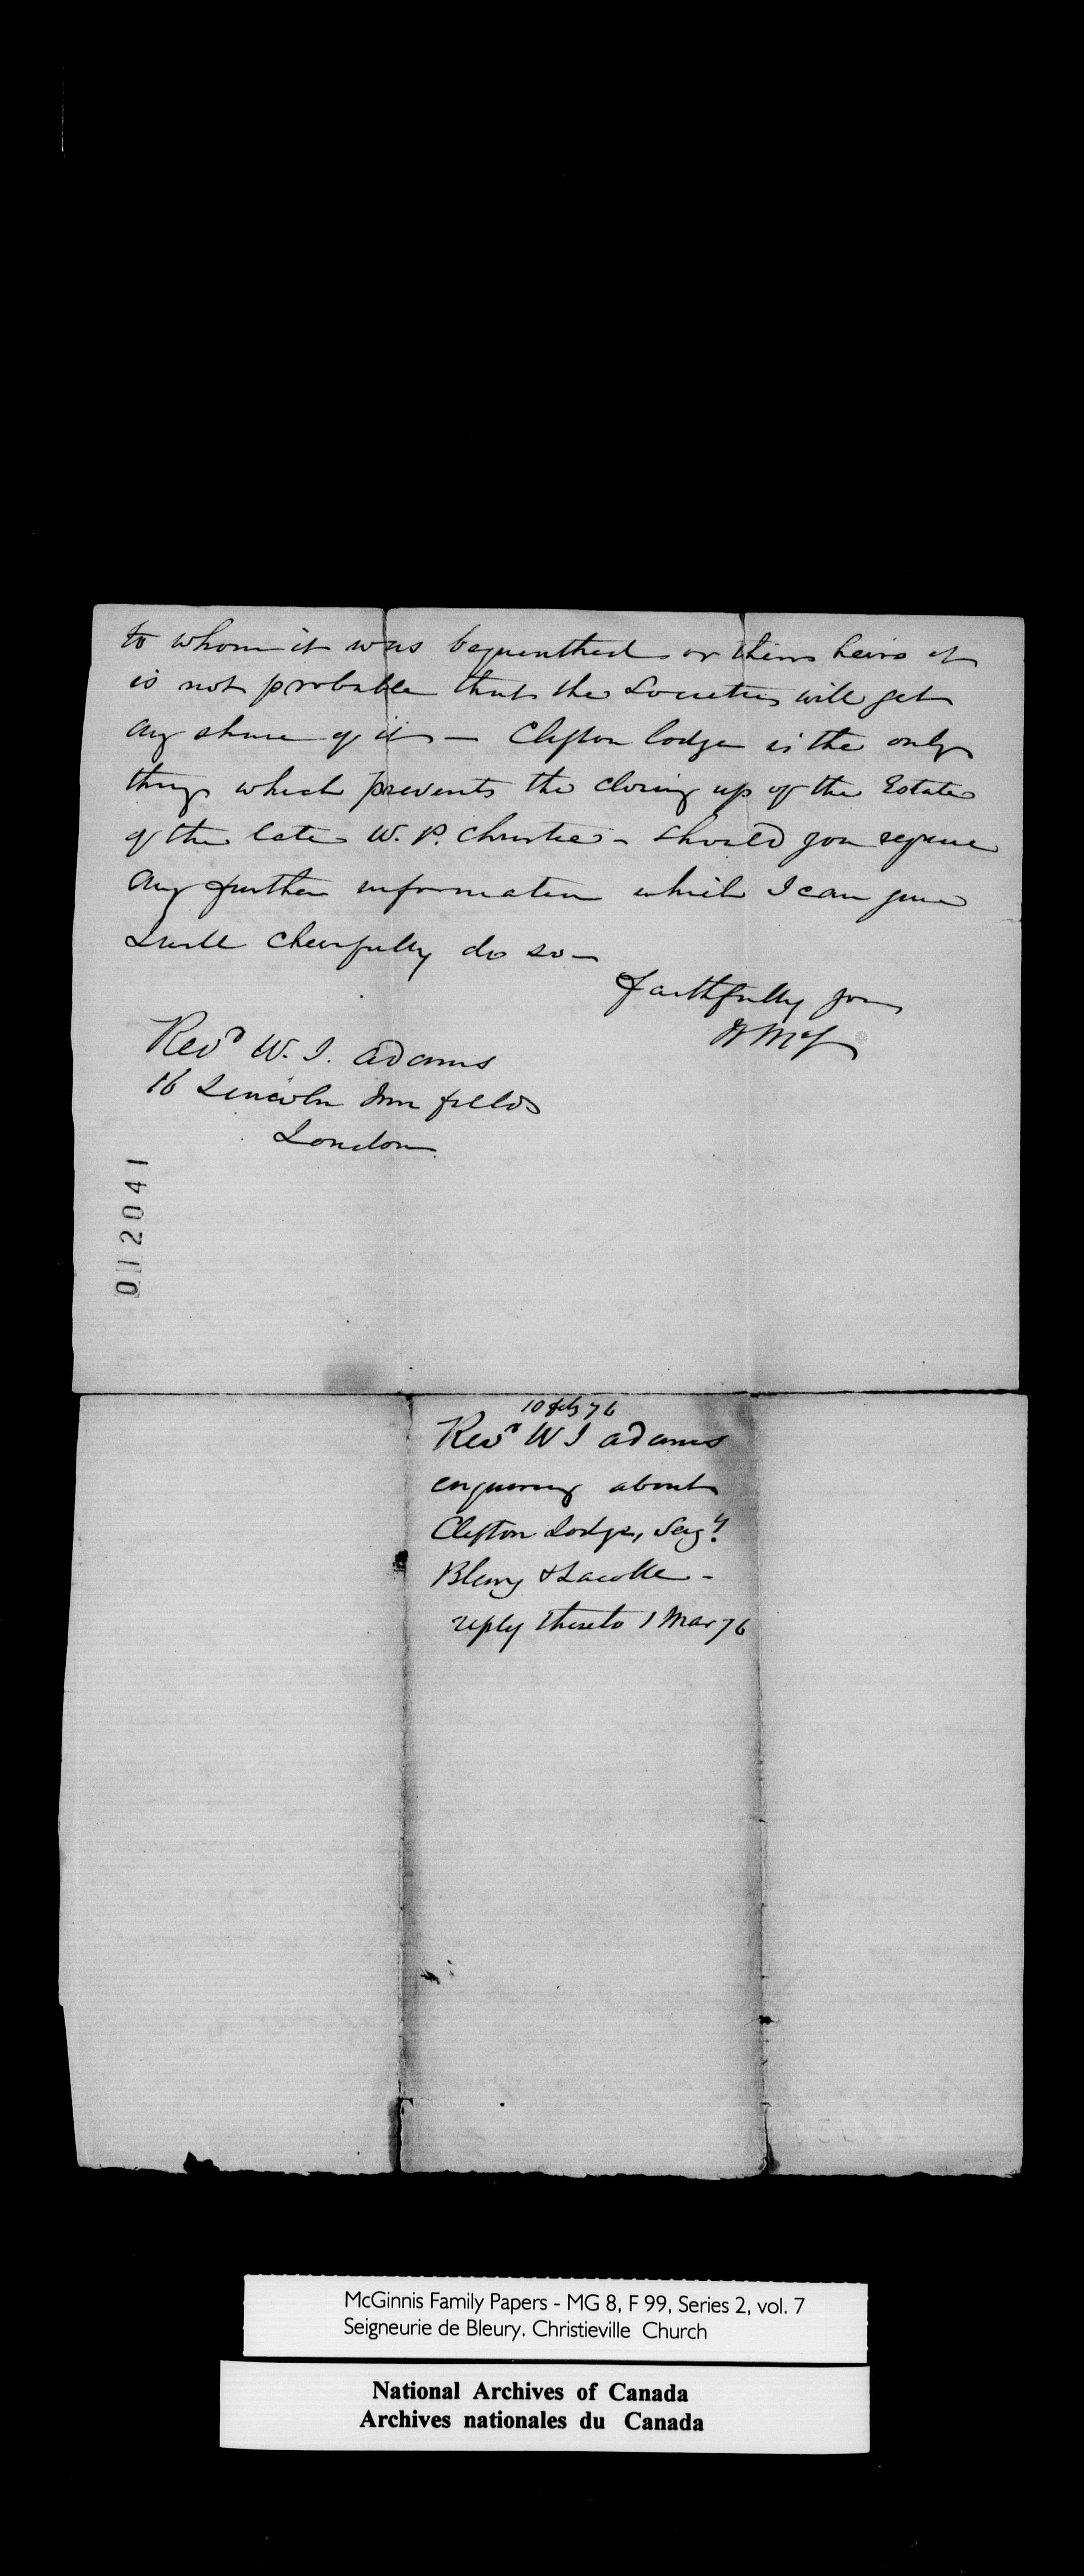 to whom it was bequeathed or their heirs it
is not probable that the Societies will get
any share of it — Clifton lodge is the only
thing which prevents the closing up of the Estate
of the late W. P. Christie - Should you require
any further information which I can give
I will cheerfully do so —
faithfully yours
W McG
Revd W. I. Adams
16 Lincoln Inn fields
London
012041
10 feby 76
Revd W I Adams
enquiring about
Clifton Lodge, Seigy
Bleury & Lacolle -
reply thereto 1 Mar 76
McGinnis Family Papers - MG 8, F 99, Series 2, vol. 7
Seigneurie de Bleury. Christieville Church
National Archives of Canada
Archives nationales du Canada